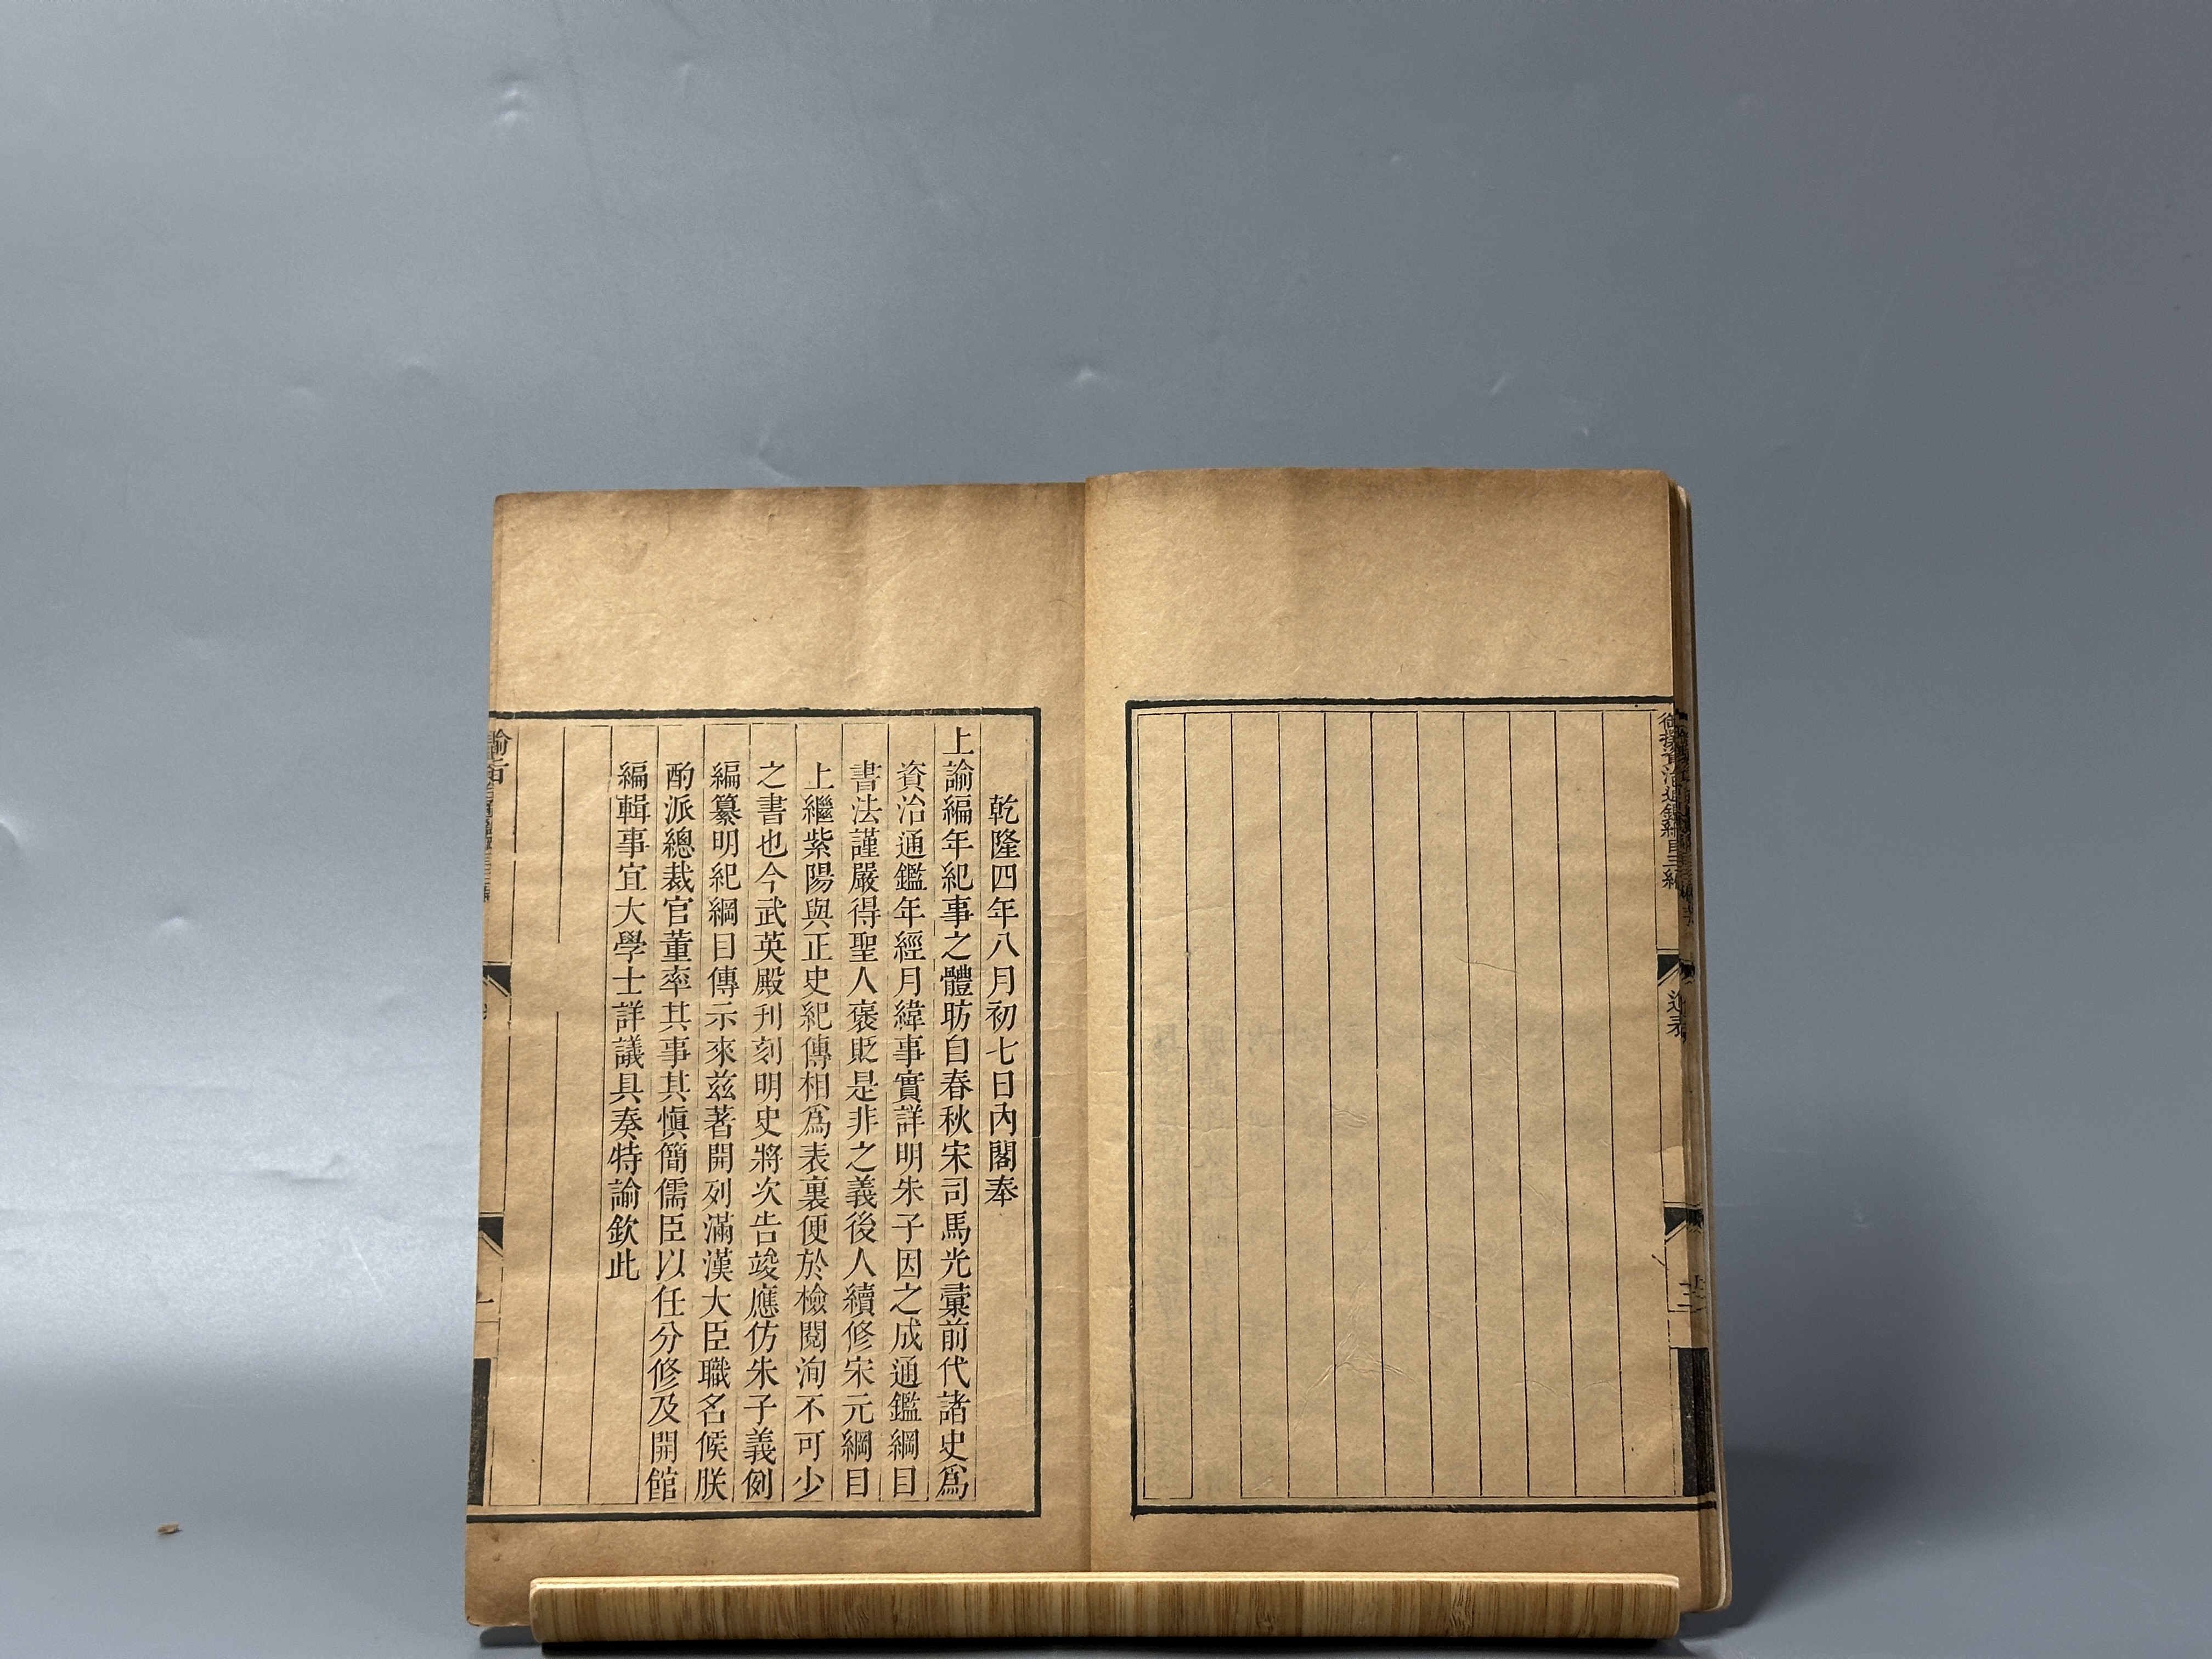 御撰資治通鑑綱目三編
進表
乾隆四年八月初七日內閣奉
上諭編年紀事之體昉自春秋宋司馬光彚前代諸史爲
資治通鑑年經月緯事實詳明朱子因之成通鑑綱目
書法謹嚴得聖人褒貶是非之義後人續修宋元綱目
上繼紫陽與正史紀傳相爲表裏便於檢閱洵不可少
之書也今武英殿刊刻明史將次告竣應仿朱子義例
編纂明紀綱目傳示來兹著開列滿漢大臣職名候朕
酌派總裁官董率其事其愼簡儒臣以任分修及開館
編輯事宜大學士詳議具奏特諭欽此
諭旨